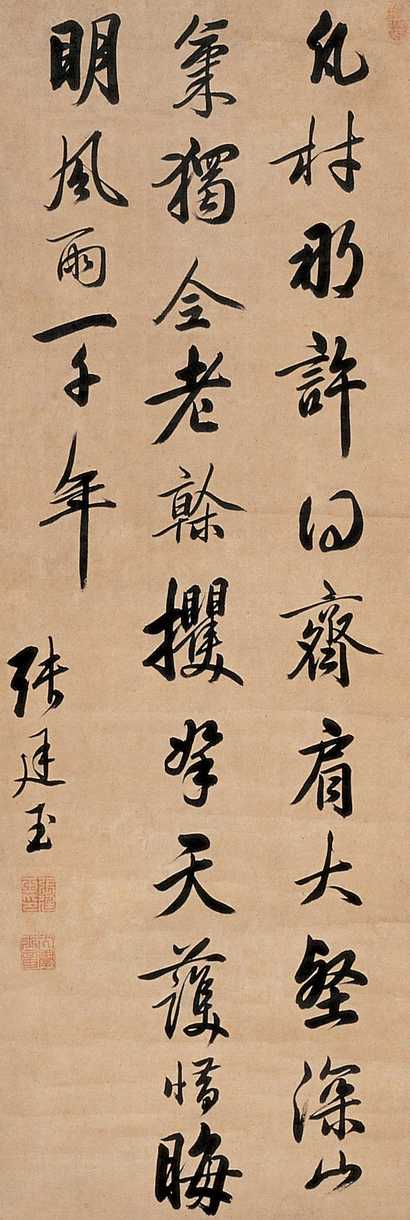 凡材那許同齊肩大壑深山
氣獨全老幹攫拏天護惜晦
明風雨一千年
張廷玉